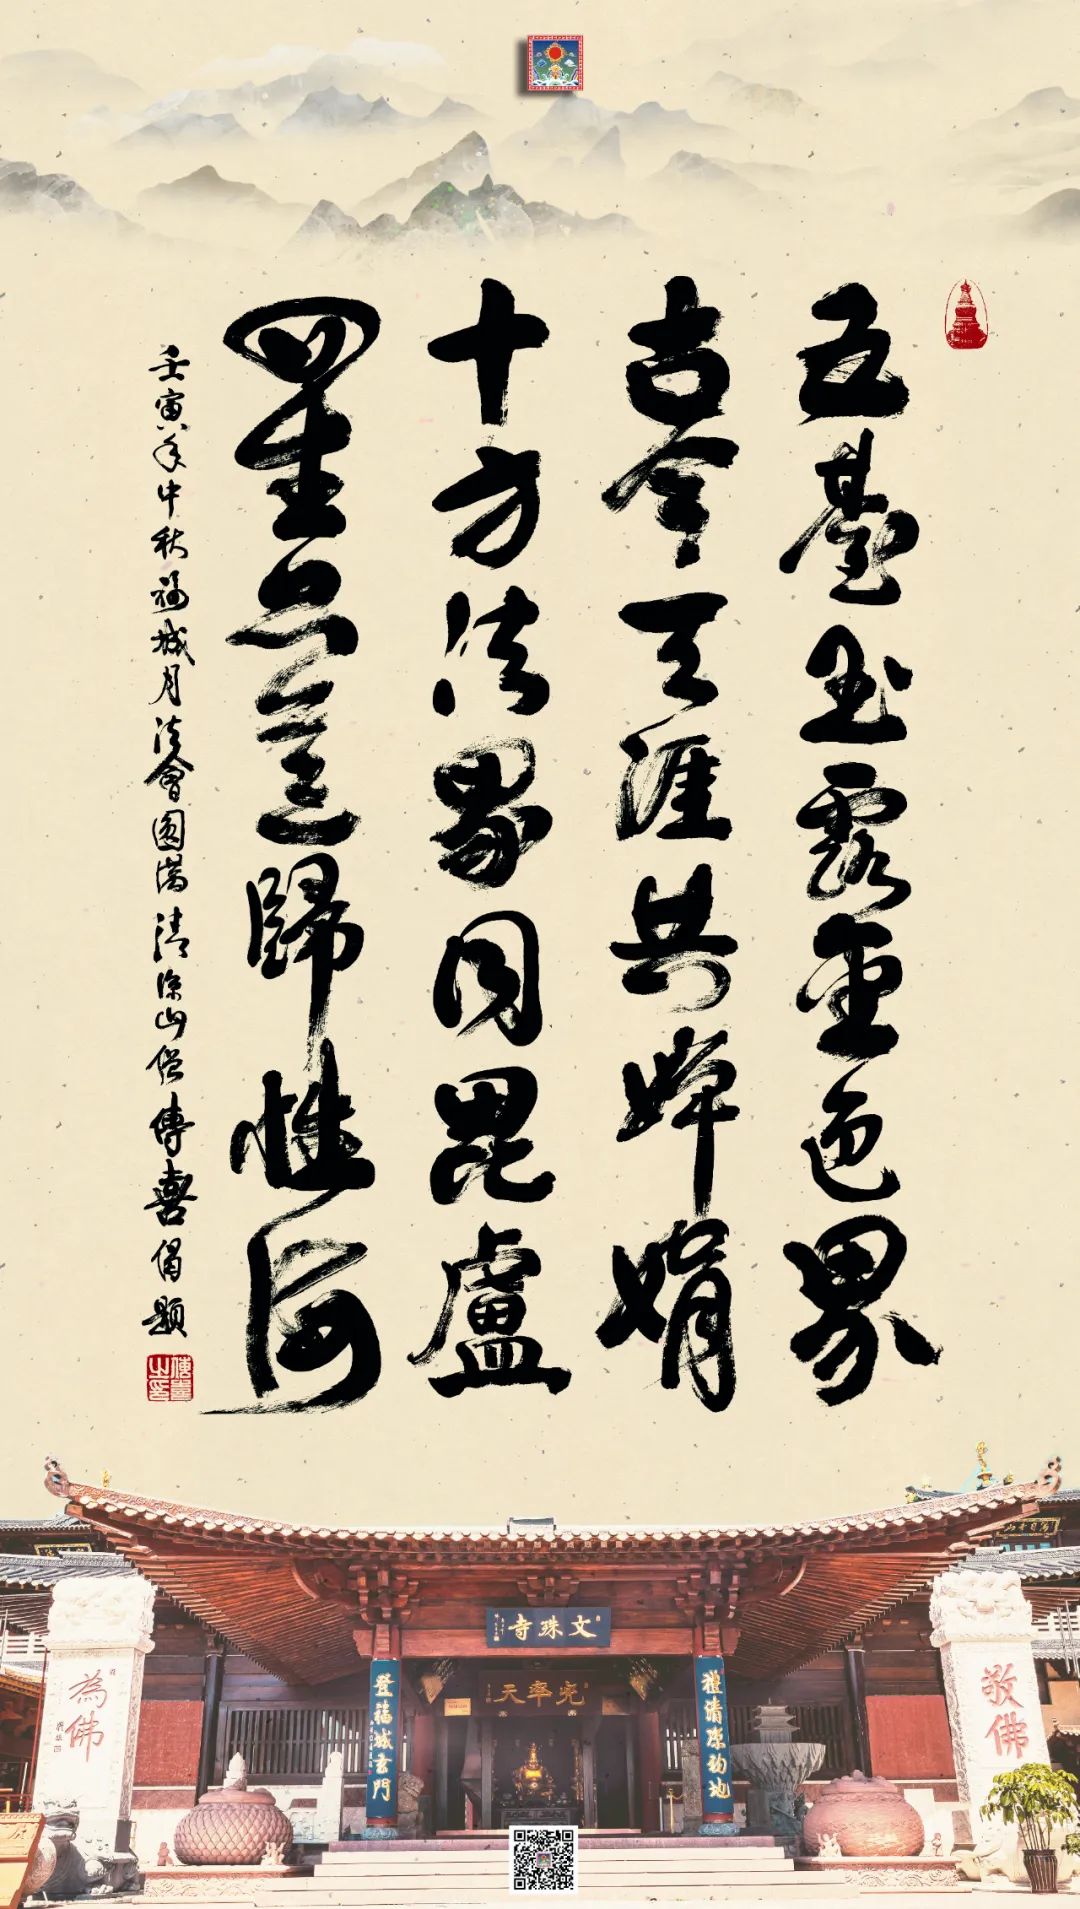 五臺玉露金色界
古今天涯共婵娟
十方法界同毘盧
四生六道歸性海
壬寅年中秋福城月法會圓滿清涼山僧傳喜偈題
傳喜之印
文珠寺
兜率天
禮清涼初地
登福城玄門
敬佛
為佛